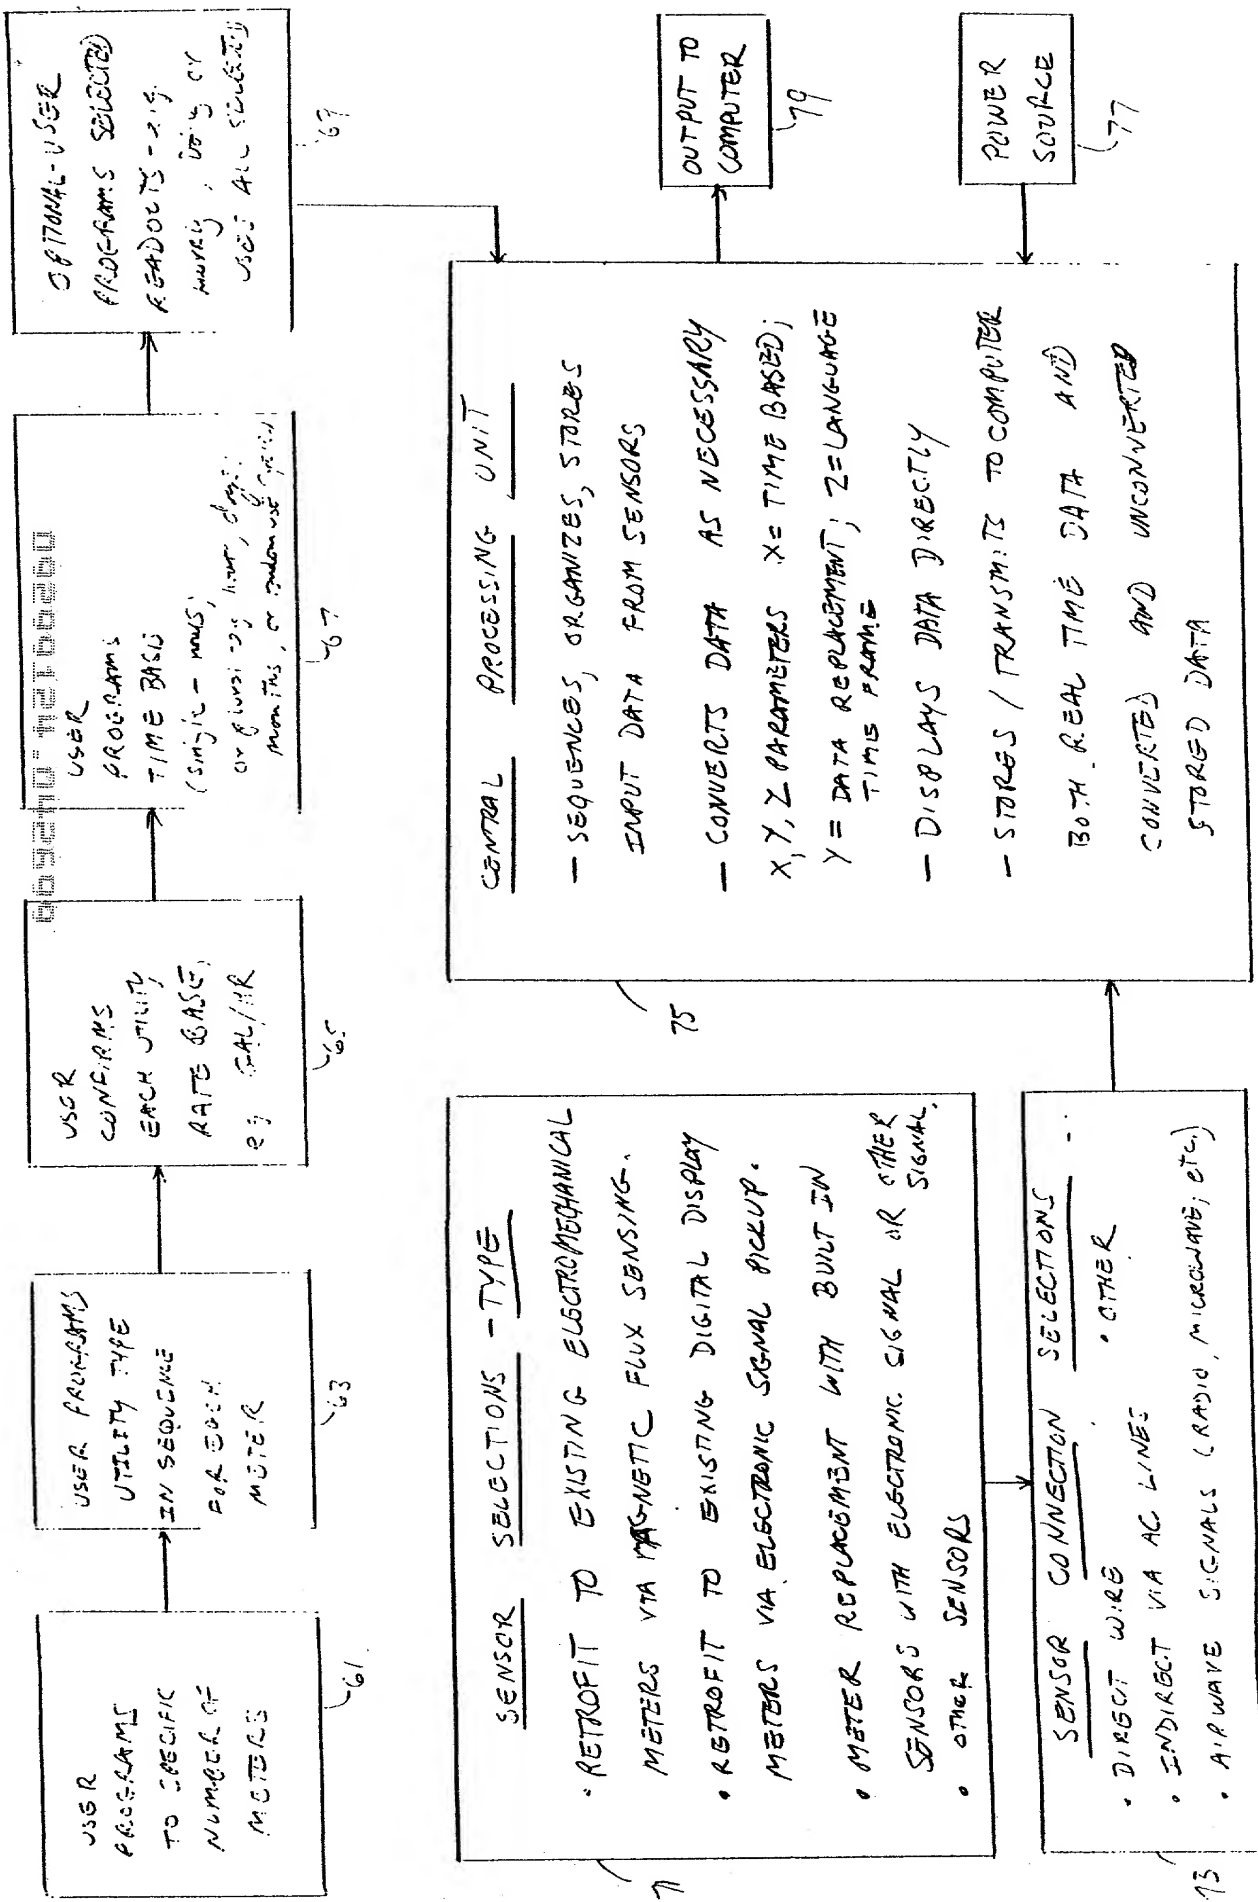 USER
PROGRAMS
TO SPECIFIC
NUMBER OF
METERS
61
USER PROGRAMS
UTILITY TYPE
IN SEQUENCE
FOR EACH
METER
63
USER
CONFIRMS
EACH UTILITY
RATE BASE,
eg GAL/HR
65
USER
PROGRAMS
TIME BASIS
(Single - hours;
or plursing hours, days,
months, or random use
67
OPTIONAL-USER
PROGRAMS SELECTED
READOUTS - e.g.
hourly, daily or
USES ALL SELECTED
69
SENSOR SELECTIONS - TYPE
• RETROFIT TO EXISTING ELECTROMECHANICAL
METERS VIA MAGNETIC FLUX SENSING.
• RETROFIT TO EXISTING DIGITAL DISPLAY
METERS VIA ELECTRONIC SIGNAL PICKUP.
• METER REPLACEMENT WITH BUILT IN
SENSORS WITH ELECTRONIC SIGNAL OR OTHER
SIGNAL.
• OTHER SENSORS
71
SENSOR CONNECTION SELECTIONS
• DIRECT WIRE • OTHER
• INDIRECT VIA AC LINES
• AIRWAVE SIGNALS (RADIO, MICROWAVE, etc.)
73
CENTRAL PROCESSING UNIT
— SEQUENCES, ORGANIZES, STORES
INPUT DATA FROM SENSORS
— CONVERTS DATA AS NECESSARY
X, Y, Z PARAMETERS X = TIME BASED;
Y = DATA REPLACEMENT; Z = LANGUAGE
TIME FRAME
— DISPLAYS DATA DIRECTLY
— STORES / TRANSMITS TO COMPUTER
BOTH REAL TIME DATA AND
CONVERTED AND UNCONVERTED
STORED DATA
75
OUTPUT TO
COMPUTER
79
POWER
SOURCE
77